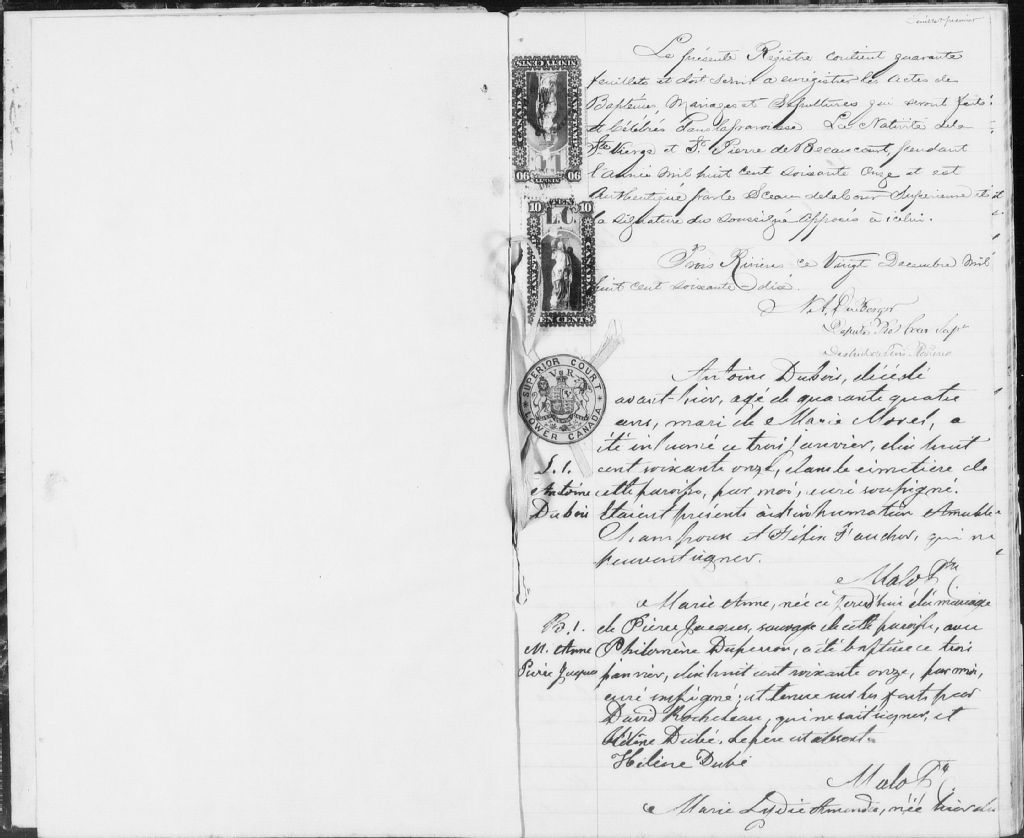 feuillet premier
Le présente Régître contient quarante
feuillets et doit servir a enrégistrer les actes de
Baptêmes, Mariages et Sépultures qui seront faits
et Célébrés Dans la paroisse La Nativité de la
Ste Vierge et St. Pierre de Becancourt, pendant
l'année Mil huit Cent soixante Onze et est
Authentiqué par le Sceau de la Cour Supérieure et
la signature du soussigné apposés à icelui.
Trois Rivières ce Vingt Decembre Mil
huit cent soixante-dix.
Deputé
L.C.
10 10
TEN CENTS
SUPERIOR COURT
V R
LOWER CANADA
S. 1.
Antoine
Dubois
Antoine Dubois, décédé
avant-hier, agé de quarante quatre
ans, mari de Marie Morel, a
été inhumé ce trois janvier, dix huit
cent soixante onze, dans le cimetière de
cette paroisse, par moi, curé soussigné.
Etaient présents à l'inhumation Amable
Champoux et Félix Faucher, qui ne
peuvent signer.
Malo Ptre
B. 1.
M. Anne
Pierre Jacques
Marie Anne, née ce jourd'hui du mariage
de Pierre Jacques, sauvage de cette paroisse, avec
Philomène Duperron, a été baptisée ce trois
janvier, dix huit cent soixante onze, par moi,
curé soussigné; et tenue sur les fonts par
David Rocheleau, qui ne sait signer, et
Hélène Dubé, le père est absent
Hélène Dubé
Malo Ptre
Marie Lydie Amanda, née hier du